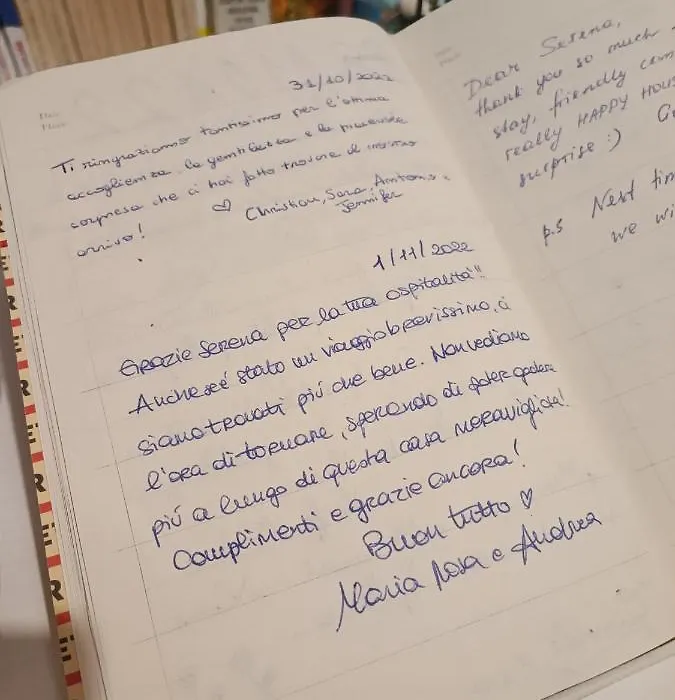 31/10/2022
Ti ringraziamo tantissimo per l'ottima
accoglienza, la gentilezza e la piacevole
sorpresa che ci hai fatto trovare al nostro
arrivo!
♡ Christian, Sara, Antonio e
Jennifer
1/11/2022
Grazie Serena per la tua ospitalità!!
Anche se é stato un viaggio brevissimo, ci
siamo trovati piú che bene. Non vediamo
l'ora di tornare, sperando di potere godere
piú a lungo di questa casa meravigliosa!
Complimenti e grazie ancora!
Buon tutto ♡
Maria Rosa e Andrea
Dear Serena,
thank you so much
stay, friendly
really HAPPY HOUS
surprise :)
p.s Next tim
we wi